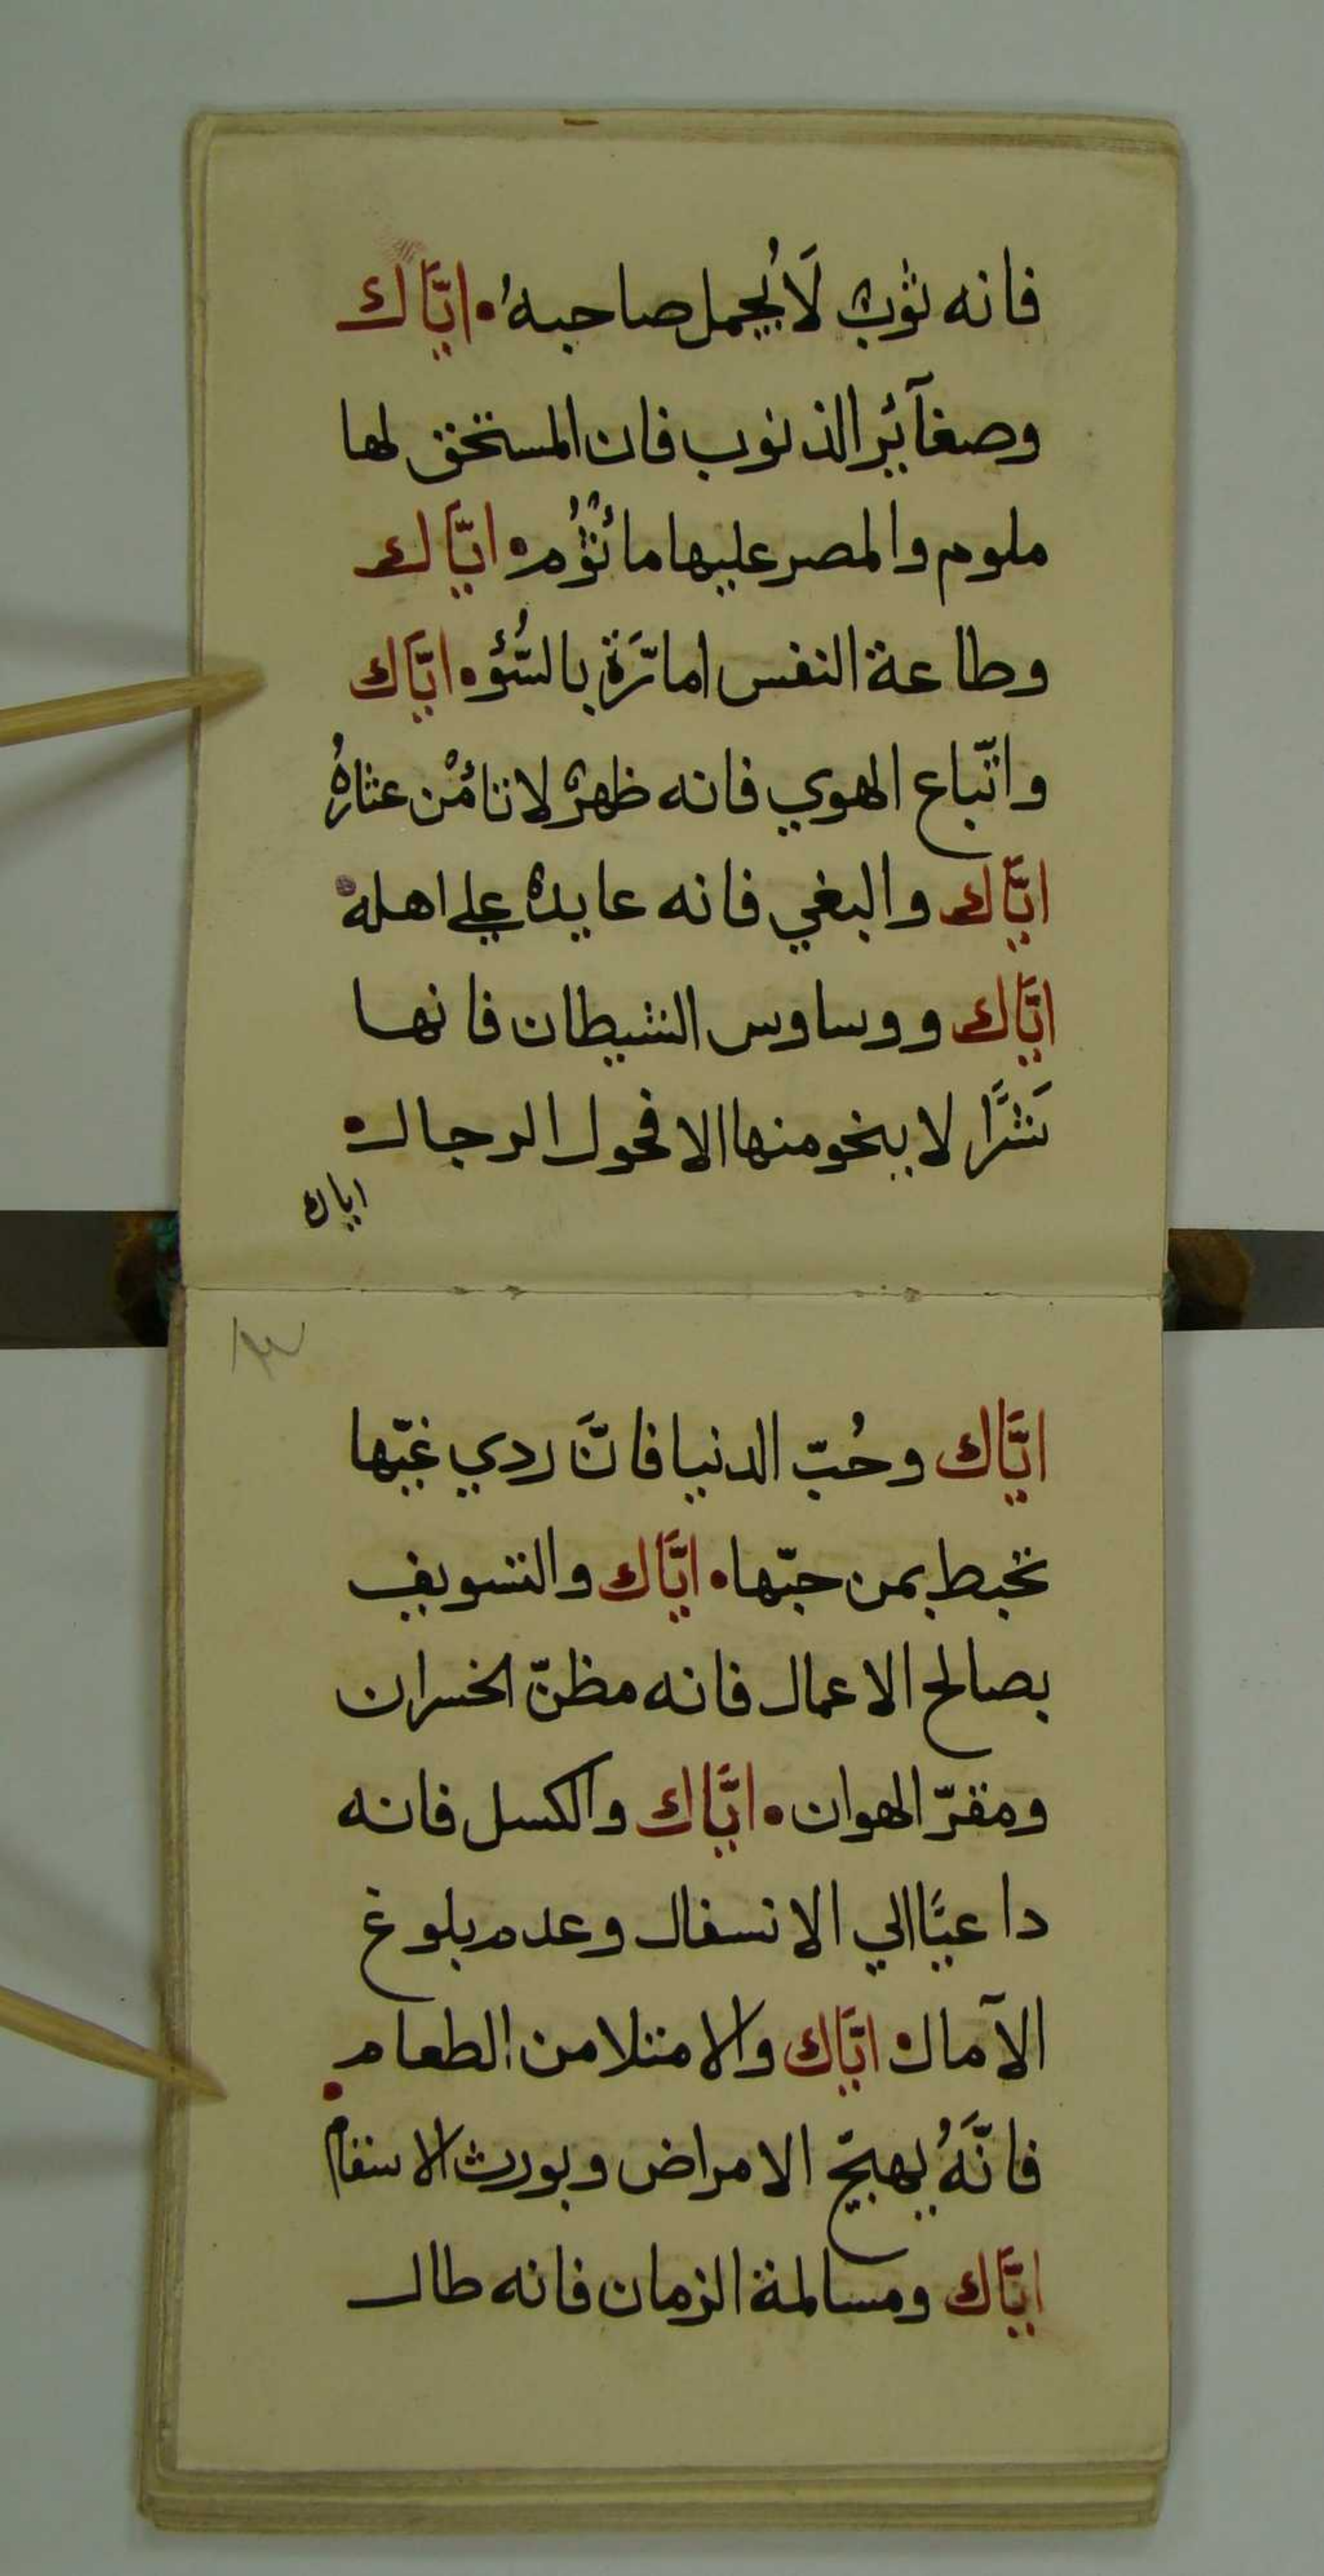 فانه ثوبٌ لَا يُجمل صاحبهُ • ايَّاك
وصغآئر الذنوب فان المستخق لها
ملوم والمصر عليها مائثُوُم • ايَّاك
وطاعة النفس امارَّة بالسُّؤ • ايَّاك
واتّباع الهوي فانه ظهرٌ لا تائمْن عثارهُ
ايَّاك والبغي فانه عايدٌ علي اهله •
ايَّاك ووساوس الشيطان فانها
شَرًّا لا ينجو منها الا فحول الرجال •
اياك
ايَّاك وحُبّ الدنيا فانَّ ردي غبّها
تحبط بمن حبّها • ايَّاك والتسويف
بصالح الاعمال فانه مظنّ الخسران
ومقرّ الهوان • ايَّاك والكسل فانه
داعيًّا الي الانسفال وعدم بلوغ
الآمال • ايَّاك والامتلا من الطعام •
فانَّهُ يهيّج الامراض ويورث الاسقام
ايَّاك ومسالمة الزمان فانه طال